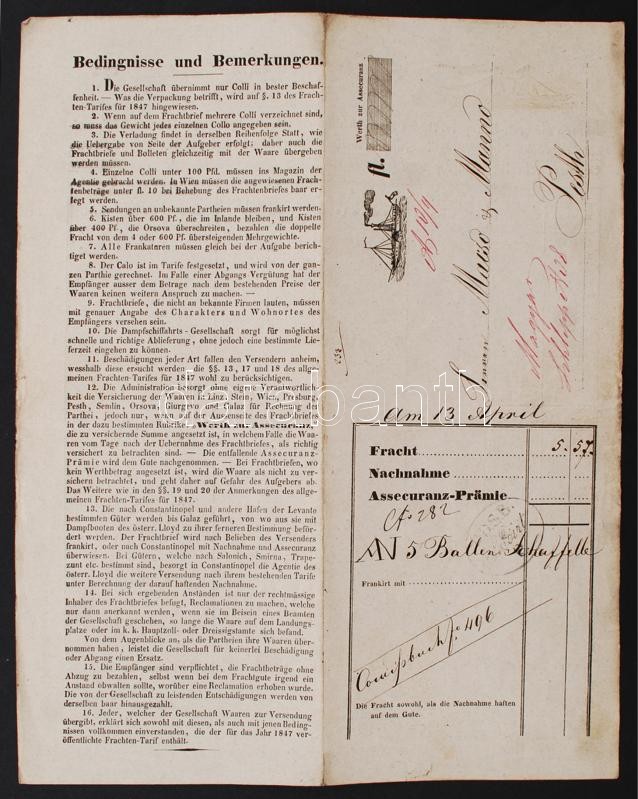 Bedingnisse und Bemerkungen.
1. Die Gesellschaft übernimmt nur Colli in bester Beschaf-
fenheit. — Was die Verpackung betrifft, wird auf §. 13 des Frach-
ten-Tarifes für 1847 hingewiesen.
2. Wenn auf dem Frachtbrief mehrere Colli verzeichnet sind,
so muss das Gewicht jedes einzelnen Collo angegeben sein.
3. Die Verladung findet in derselben Reihenfolge Statt, wie
die Uebergabe von Seite der Aufgeber erfolgt; daher auch die
Frachtbriefe und Bolleten gleichzeitig mit der Waare übergeben
werden müssen.
4. Einzelne Colli unter 100 Pfd. müssen ins Magazin der
Agentie gebracht werden. In Wien müssen die angewiesenen Frach-
tenbeträge unter fl. 10 bei Behebung des Frachtenbriefes baar er-
legt werden.
5. Sendungen an unbekannte Partheien müssen frankirt werden.
6. Kisten über 600 Pf., die im Inlande bleiben, und Kisten
über 400 Pf., die Orsova überschreiten, bezahlen die doppelte
Fracht von dem 4 oder 600 Pf. übersteigenden Mehrgewichte.
7. Alle Frankaturen müssen gleich bei der Aufgabe berich-
tigt werden.
8. Der Calo ist im Tarife festgesetzt, und wird von der gan-
zen Parthie gerechnet. Im Falle einer Abgangs-Vergütung hat der
Empfänger ausser dem Betrage nach dem bestehenden Preise der
Waaren keinen weitern Anspruch zu machen. —
9. Frachtbriefe, die nicht an bekannte Firmen lauten, müssen
mit genauer Angabe des Charakters und Wohnortes des
Empfängers versehen sein.
10. Die Dampfschiffahrts-Gesellschaft sorgt für möglichst
schnelle und richtige Ablieferung, ohne jedoch eine bestimmte Lie-
ferzeit eingehen zu können.
11. Beschädigungen jeder Art fallen den Versendern anheim,
wesshalb diese ersucht werden, die §§. 13, 17 und 18 des allge-
meinen Frachten-Tarifes für 1847 wohl zu berücksichtigen.
12. Die Administration besorgt ohne eigene Verantwortlich-
keit die Versicherung der Waaren in Linz, Stein, Wien, Presburg,
Pesth, Semlin, Orsova, Giurgevo und Galaz für Rechnung der
Parthei, jedoch nur, wenn auf der Aussenseite des Frachtbriefes
in der dazu bestimmten Rubrike: Werth zur Assecuranz,
die zu versichernde Summe angesetzt ist, in welchem Falle die Waa-
ren vom Tage nach der Uebernahme des Frachtbriefes, als richtig
versichert zu betrachten sind. — Die entfallende Assecuranz-
Prämie wird dem Gute nachgenommen. — Bei Frachtbriefen, wo
kein Werthbetrag angesetzt ist, wird die Waare als nicht zu ver-
sichern betrachtet, und geht daher auf Gefahr des Aufgebers ab.
Das Weitere wie in den §§. 19 und 20 der Anmerkungen des allge-
meinen Frachten-Tarifes für 1847.
13. Die nach Constantinopel und andere Hafen der Levante
bestimmten Güter werden bis Galaz geführt, von wo aus sie mit
Dampfbooten des österr. Lloyd zu ihrer ferneren Bestimmung beför-
dert werden. Der Frachtbrief wird nach Belieben des Versenders
frankirt, oder nach Constantinopel mit Nachnahme und Assecuranz
überwiesen. Bei Gütern, welche nach Salonich, Smirna, Trape-
zunt etc. bestimmt sind, besorgt in Constantinopel die Agentie des
österr. Lloyd die weitere Versendung nach ihrem bestehenden Tarife
unter Berechnung der darauf haftenden Nachnahme.
14. Bei sich ergebenden Anständen ist nur der rechtmässige
Inhaber des Frachtbriefes befugt, Reclamationen zu machen, welche
nur dann anerkannt werden, wenn sie im Beisein eines Beamten
der Gesellschaft geschehen, so lange die Waare auf dem Landungs-
platze oder im k. k. Hauptzoll- oder Dreissigstamte sich befand.
Von dem Augenblicke an, als die Partheien ihre Waaren über-
nommen haben, leistet die Gesellschaft für keinerlei Beschädigung
oder Abgang einen Ersatz.
15. Die Empfänger sind verpflichtet, die Frachtbeträge ohne
Abzug zu bezahlen, selbst wenn bei dem Frachtgute irgend ein
Anstand obwalten sollte, worüber eine Reclamation erhoben wurde.
Die von der Gesellschaft zu leistenden Entschädigungen werden von
derselben baar hinausgezahlt.
16. Jeder, welcher der Gesellschaft Waaren zur Versendung
übergibt, erklärt sich sowohl mit diesen, als auch mit jenen Beding-
nissen vollkommen einverstanden, die der für das Jahr 1847 ver-
öffentlichte Frachten-Tarif enthält.
Werth zur Assecuranz
fl.
Manno
Pesth
Magyar
Am 13 April
Fracht 5. 57.
Nachnahme
Assecuranz-Prämie
No 282
5 Ballen Schaffelle
Frankirt mit
No 496
Die Fracht sowohl, als die Nachnahme haften
auf dem Gute.
darabanth